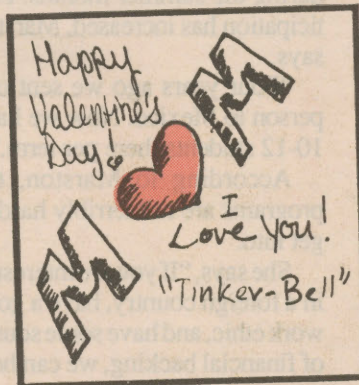 Happy
Valentine's
Day!
M
M
I
Love you!
"Tinker-Bell"